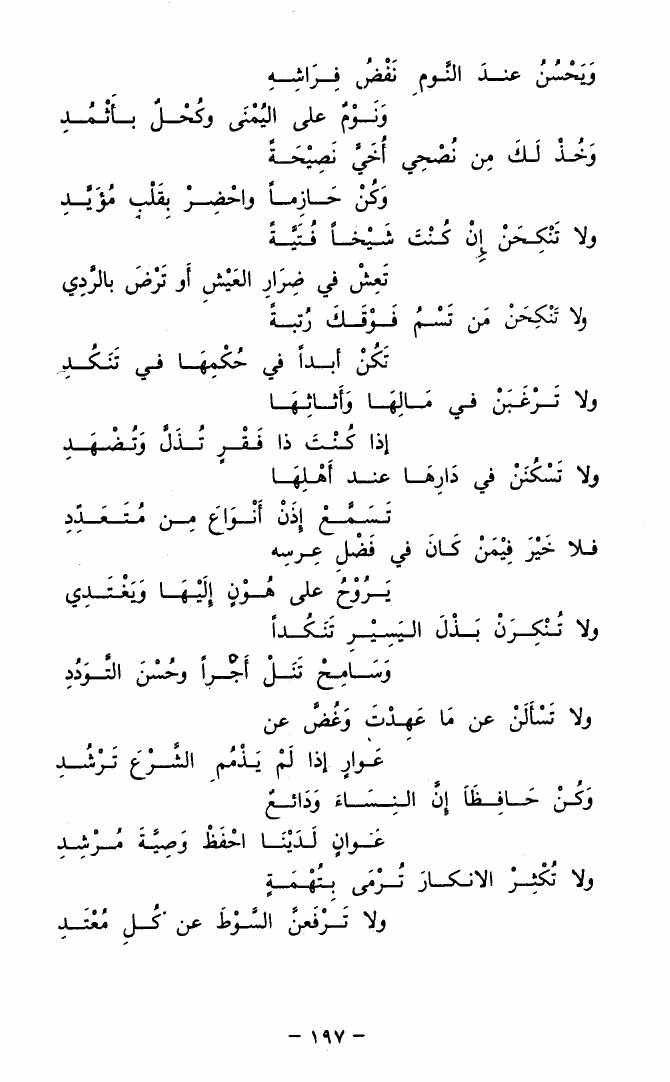 وَيَحْسُنُ عنـدَ النَّومِ نَفْضُ فِـرَاشِـهِ
وَنَـوْمٌ على اليُمْنَى وكُحْـلٌ بـأَثْمُـدِ
وَخُـذْ لَـكَ مِن نُصْحِي أُخَيَّ نَصِيْحَـةً
وَكُنْ حَـازِمـاً واحْضِـرْ بِقَلْبٍ مُؤَيَّـدِ
ولا تَنْكِحَـنْ إِنْ كُنْتَ شَيْخـاً فُتَيَّـةً
تَعِشْ في ضِرَارِ العَيْشِ أو تَرْضَ بالرَّدِي
ولا تَنْكِحَنْ مَن تَسْمُ فَـوْقَـكَ رُتبـةً
تَكُنْ أبـداً في حُكْمِهَـا فـي تَنَكُّـدِ
ولا تَـرْغَبَنْ فـي مَـالِهَا وَأثـاثِهَـا
إذا كُنْـتَ ذا فَقْـرٍ تُـذَلَّ وَتُضْهَـدِ
ولا تَسْكُنَنْ في دَارِهَـا عنـد أَهْلِهَـا
تَسَمَّـعْ إِذَنْ أَنْـوَاعَ مِـن مُتَعَـدِّدِ
فـلا خَيْرَ فِيْمَنْ كَـانَ في فَضْلِ عِـرسِه
يَـرُوْحُ على هُـوْنٍ إِلَيْهَـا وَيَغْتَـدِي
ولا تُنْكِـرَنْ بَـذْلَ اليَسِيْـرِ تَنَكُّـداً
وَسَـامِـحْ تَنَـلْ أَجْـراً وحُسْنَ التَّـوَدُدِ
ولا تَسْأَلَنْ عن مَا عَهِـدْتَ وَغُضَّ عن
عَـوارٍ إذا لَمْ يَـذْمُمِ الشَّـرْعَ تَـرْشُـدِ
وَكُـنْ حَـافِـظَاً إنَّ النِسَـاءَ وَدَائـعٌ
عَـوانٍ لَـدَيْنَـا احْفَظْ وَصِيَّةَ مُـرْشِـدِ
ولا تُكْثِـرْ الانكـارَ تُـرْمَى بِـتُهْمَـةٍ
ولا تَـرْفَعنَّ السَّوْطَ عن كُـلِ مُعْتَـدِ
– ١٩٧ –